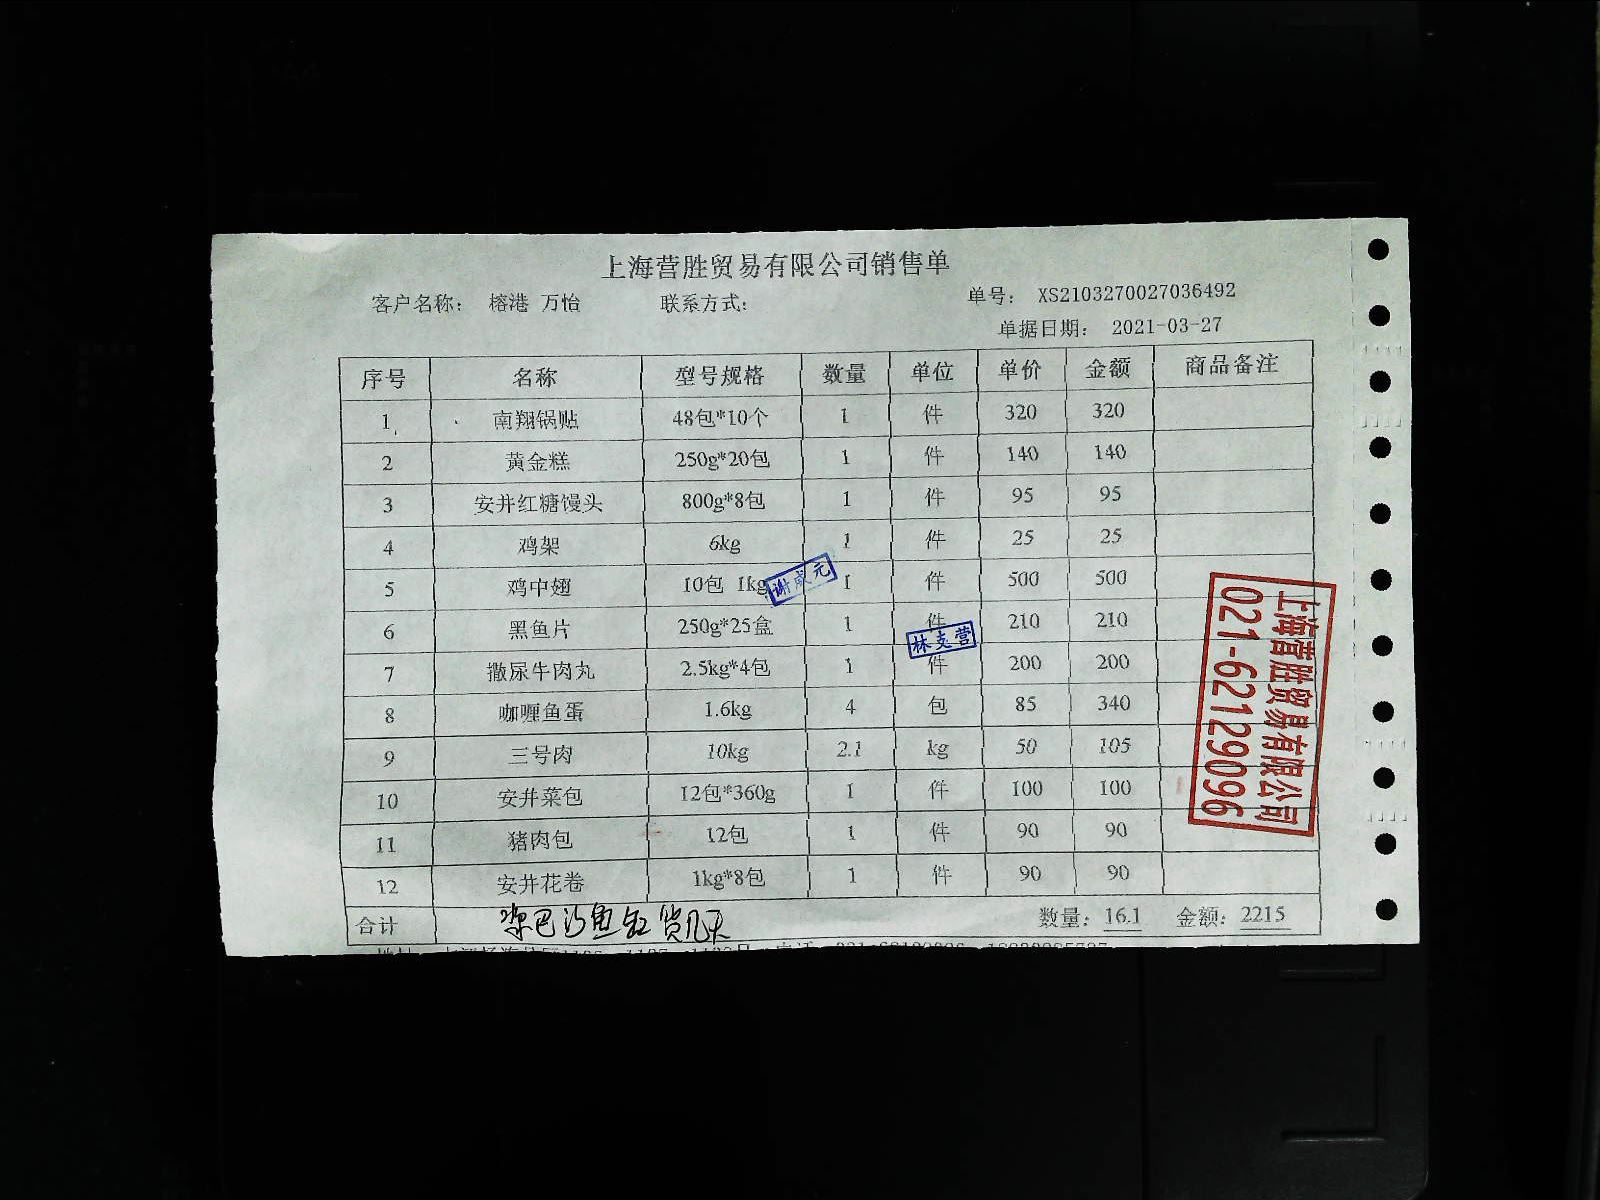 上海营胜贸易有限公司销售单
客户名称： 榕港 万怡 联系方式： 单号： XS2103270027036492
单据日期： 2021-03-27
序号 名称 型号规格 数量 单位 单价 金额 商品备注
1 南翔锅贴 48包*10个 1 件 320 320
2 黄金糕 250g*20包 1 件 140 140
3 安井红糖馒头 800g*8包 1 件 95 95
4 鸡架 6kg 1 件 25 25
5 鸡中翅 10包 1kg 1 件 500 500
6 黑鱼片 250g*25盒 1 件 210 210
7 撒尿牛肉丸 2.5kg*4包 1 件 200 200
8 咖喱鱼蛋 1.6kg 4 包 85 340
9 三号肉 10kg 2.1 kg 50 105
10 安井菜包 12包*360g 1 件 100 100
11 猪肉包 12包 1 件 90 90
12 安井花卷 1kg*8包 1 件 90 90
合计 数量：16.1 金额：2215
上海营胜贸易有限公司
021-62129096